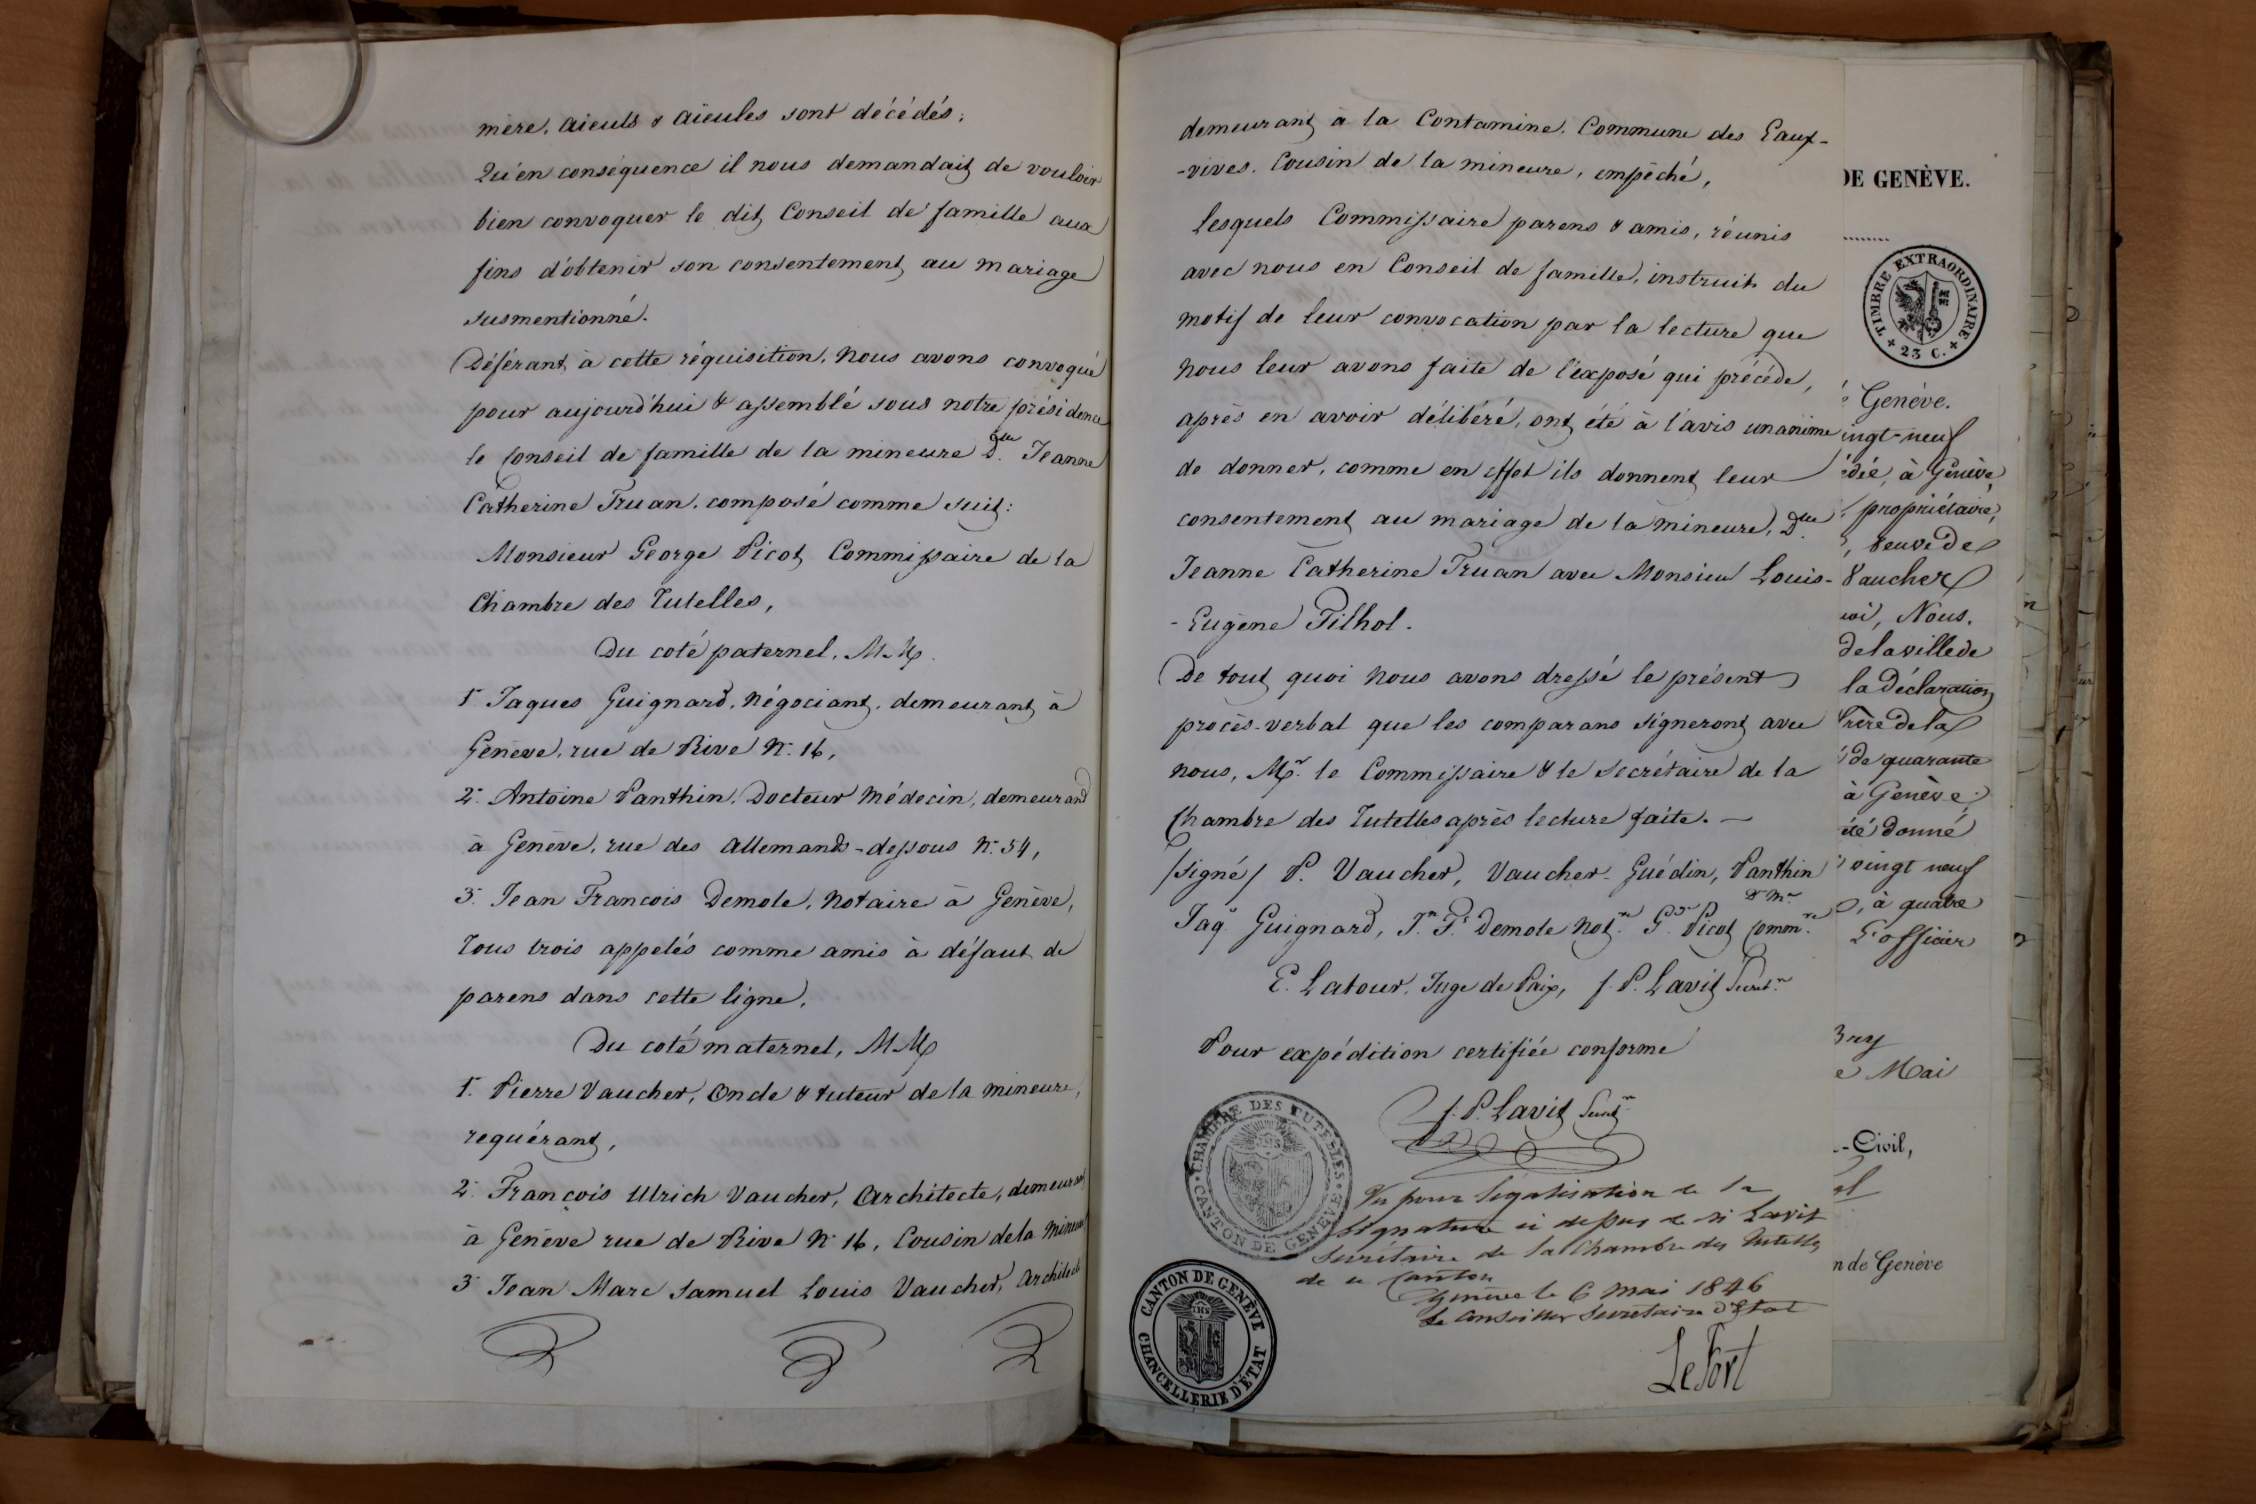 mère, aïeuls & aïeules sont décédés;
Qu'en conséquence il nous demandait de vouloir
bien convoquer le dit Conseil de famille aux
fins d'obtenir son consentement au mariage
susmentionné.
Déférant à cette réquisition, Nous avons convoqué
pour aujourd'hui & assemblé sous notre présidence
le Conseil de famille de la mineure Dlle Jeanne
Catherine Truan, composé comme suit:
Monsieur George Picot Commissaire de la
Chambre des Tutelles,
Du coté paternel, M.M.
1.° Jaques Guignard, Négociant, demeurant à
Genève, rue de Rive N.° 16,
2.° Antoine Panthin, Docteur Médecin, demeurant
à Genève, rue des Allemands-dessous N.° 54,
3.° Jean François Demole, Notaire à Genève,
Tous trois appelés comme amis à défaut de
parens dans cette ligne,
Du coté maternel, M.M.
1.° Pierre Vaucher, Oncle & tuteur de la mineure,
requérant,
2.° François Ulrich Vaucher, Architecte, demeurant
à Genève rue de Rive N.° 16, Cousin de la Mineure
3.° Jean Marc Samuel Louis Vaucher, Architecte
demeurant à la Contamine, Commune des Eaux-
-vives, Cousin de la mineure, empêché,
Lesquels Commissaire parens & amis, réunis
avec nous en Conseil de famille, instruits du
motif de leur convocation par la lecture que
Nous leur avons faite de l'exposé qui précède,
après en avoir délibéré, ont été à l'avis unanime
de donner, comme en effet ils donnent leur
consentement au mariage de la mineure, Dlle
Jeanne Catherine Truan avec Monsieur Louis-
-Eugène Filhol.
De tout quoi Nous avons dressé le présent
procès-verbal que les comparans signeront avec
nous, Mr. le Commissaire & le Secrétaire de la
Chambre des Tutelles après lecture faite. —
/signé/ P. Vaucher, Vaucher-Guédin, Panthin
Dr Mn
Jaq.s Guignard, Jn. Fs. Demole Notre. Gge. Picot Commre.
E. Latour, Juge de Paix, J. P. Lavit Secret.re
Pour expédition certifiée conforme
J. P. Lavit Secret.re
CHAMBRE DES TUTELLES
CANTON DE GENÈVE
Vu pour légalisation de la
signature ci dessus de Sr Lavit
Secrétaire de la Chambre des Tutelles
de ce Canton
Genève le 6 Mai 1846
Le Conseiller Secrétaire d'Etat
LeFort
CANTON DE GENÈVE
CHANCELLERIE D'ETAT
DE GENÈVE.
TIMBRE EXTRAORDINAIRE
23 C.
Genève.
vingt-neuf
à Genève,
propriétaire,
veuve de
Vaucher
Nous,
de la ville de
la Déclaration
frère de la
de quarante
à Genève
été donné
vingt neuf
à quatre
L'officier
Mai
Civil,
de Genève